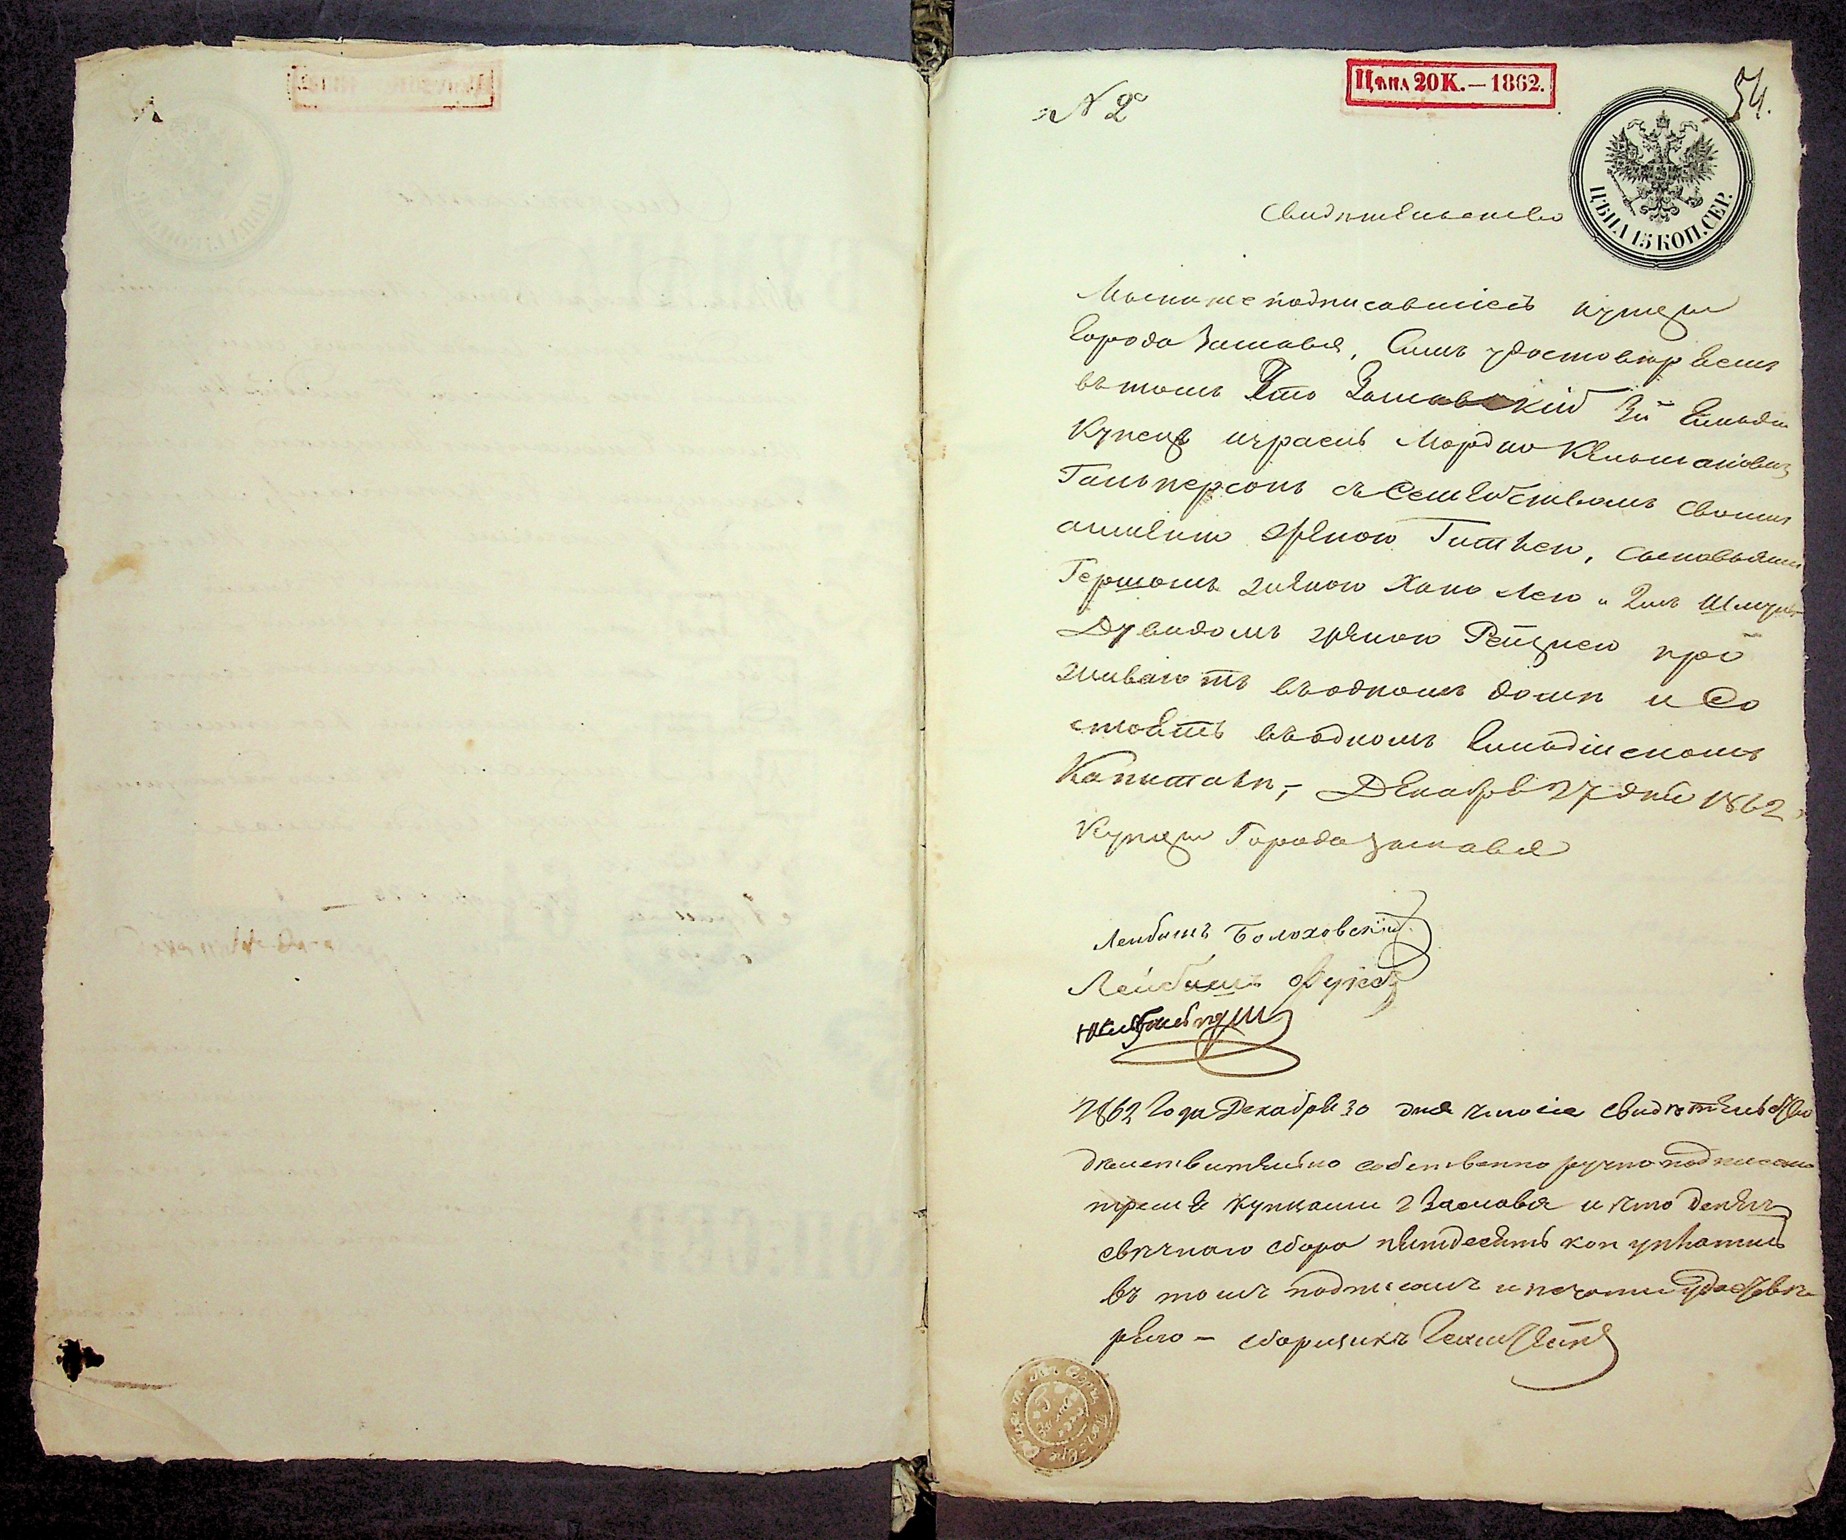 № 2й
Цѣна 20 К. — 1862.
54.
ЦѢНА 15 КОП. СЕР.
Свидѣтельство
Мы ниже подписавшiеся купцы
Города Заславя, Симъ удостовѣряемъ
въ томъ Что Заславскiй 3й Гильдiи
Купецъ израель Мордко Кельмановичъ
Гальперсонъ съ Семействомъ своимъ
аименно женою Гитлею, сыновьями
Гершомъ женою Хано Леею и 2мъ Шмуль
Дувидомъ женою Рейзнею про
живаютъ въ одномъ домѣ и Со
стоятъ въ одномъ Гильдiйскомъ
Капиталѣ, — Декабря 27 дня 1862
Купцы Города Заславля
Лейбишъ Болоховскiй
Лейбишъ Фуксъ
1862 Года Декабря 30 дня что сiе свидѣтельство
дѣйствительно собственно ручно подписано
тремя купцами г Заславя и что денегъ
свѣчнаго сбора пятдесятъ коп уплатилъ
въ томъ подписомъ и печатью удостовѣ
ряю — сборщикъ